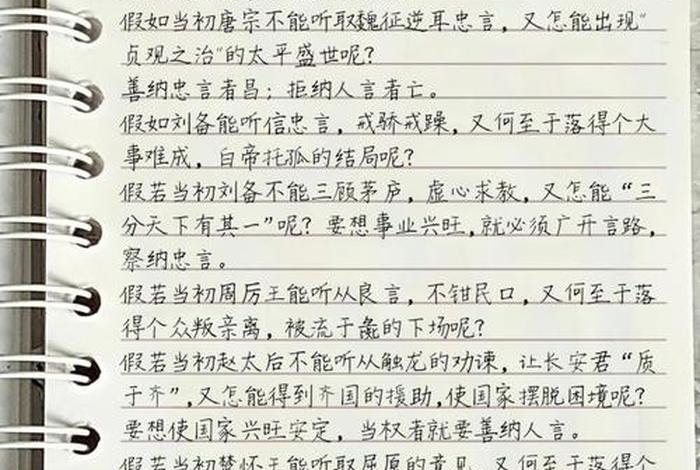 假如当初唐宗不能听取魏征逆耳忠言，又怎能出现“
贞观之治”的太平盛世呢？
善纳忠言者昌；拒纳人言者亡。
假如刘备能听信忠言，戒骄戒躁，又何至于落得个大
事难成，白帝托孤的结局呢？
假若当初刘备不能三顾茅庐，虚心求教，又怎能“三
分天下有其一”呢？要想事业兴旺，就必须广开言路，
察纳忠言。
假若当初周厉王能听从良言，不钳民口，又何至于落
得个众叛亲离，被流于彘的下场呢？
假若当初赵太后不能听从触龙的劝谏，让长安君“质
于齐”，又怎能得到齐国的援助，使国家摆脱困境呢？
要想使国家兴旺安定，当权者就要善纳人言。
假若当初楚怀王能听取屈原的意见，又何至于落得个